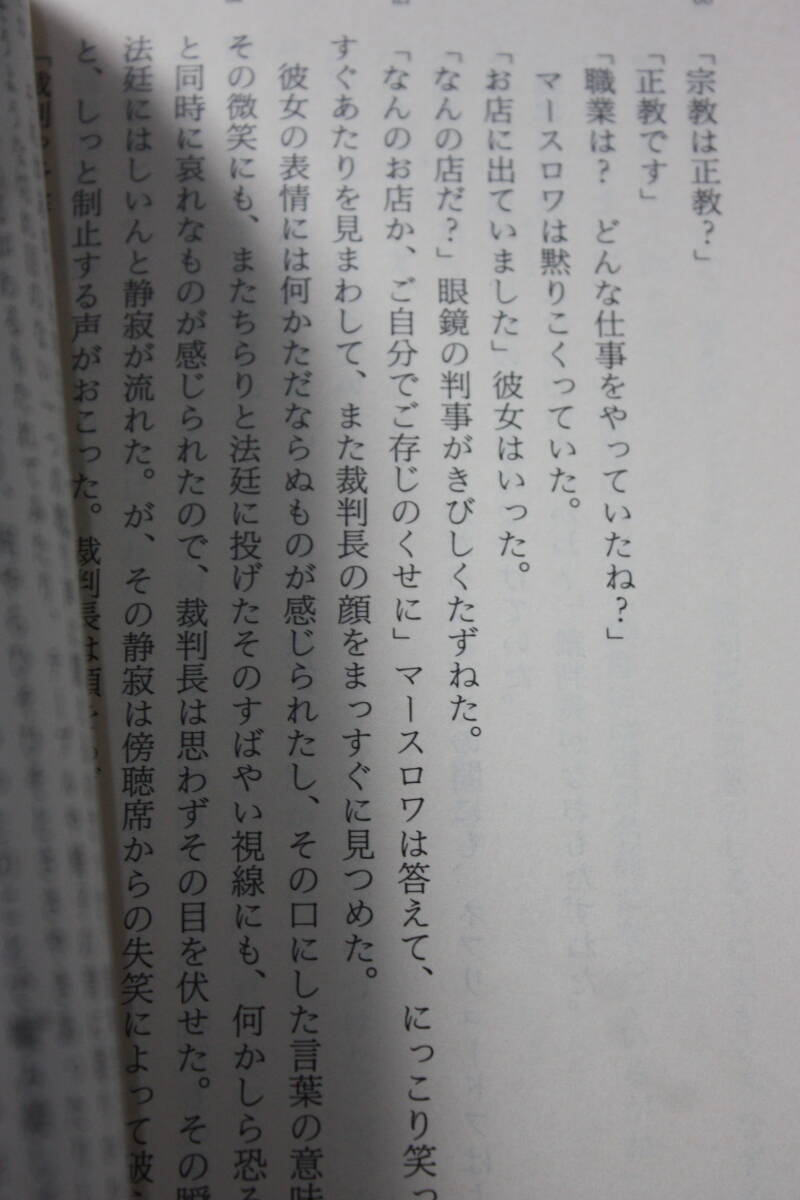 「宗教は正教？」
「正教です」
「職業は？　どんな仕事をやっていたね？」
マースロワは黙りこくっていた。
「お店に出ていました」彼女はいった。
「なんの店だ？」眼鏡の判事がきびしくたずねた。
「なんのお店か、ご自分でご存じのくせに」マースロワは答えて、にっこり笑っ
すぐあたりを見まわして、また裁判長の顔をまっすぐに見つめた。
彼女の表情には何かただならぬものが感じられたし、その口にした言葉の意味
その微笑にも、またちらりと法廷に投げたそのすばやい視線にも、何かしら恐る
と同時に哀れなものが感じられたので、裁判長は思わずその目を伏せた。その瞬
法廷にはしいんと静寂が流れた。が、その静寂は傍聴席からの失笑によって破
と、しっと制止する声がおこった。裁判長は